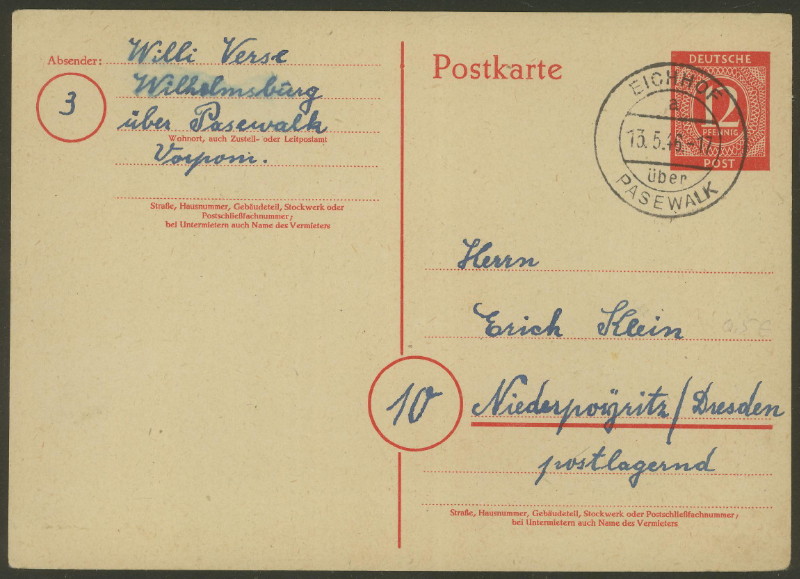 Absender: Willi Verse
3
Wilhelmsburg
über Pasewalk
Wohnort, auch Zustell- oder Leitpostamt
Vorpom.
Straße, Hausnummer, Gebäudeteil, Stockwerk oder
Postschließfachnummer;
bei Untermietern auch Name des Vermieters
Postkarte
DEUTSCHE
12
PFENNIG
POST
EICHHOF
a
13.5.
über
PASEWALK
Herrn
Erich Klein
10
Niederpoyritz/Dresden
postlagernd
Straße, Hausnummer, Gebäudeteil, Stockwerk oder Postschließfachnummer;
bei Untermietern auch Name des Vermieters